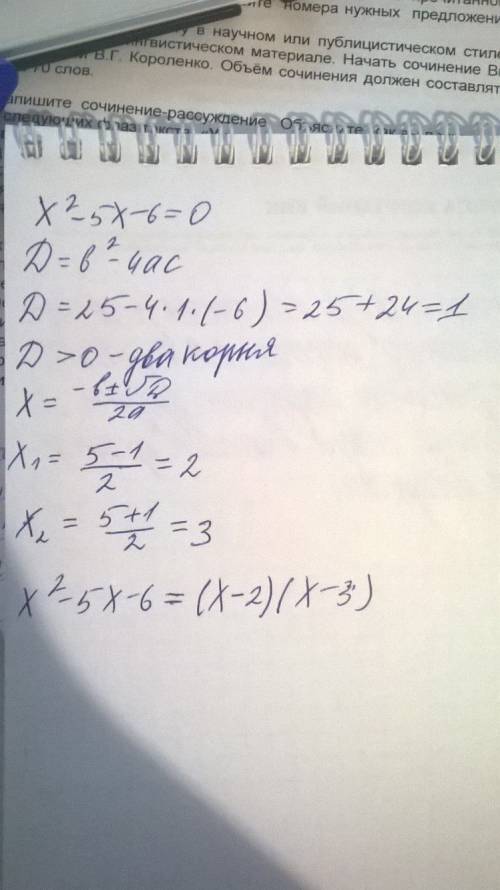 номера нужных предложени
у в научном или публицистическом стиле
нгвистическом материале. Начать сочинение
В.Г. Короленко. Объём сочинения должен составлят
70 слов.
апишите сочинение-рассуждение.
x²-5x-6=0
D=b²-4ac
D=25-4·1·(-6)=25+24=1
D>0-два корня
x=-b±√D/2a
x₁=5-1/2=2
x₂=5+1/2=3
x²-5x-6=(x-2)(x-3)